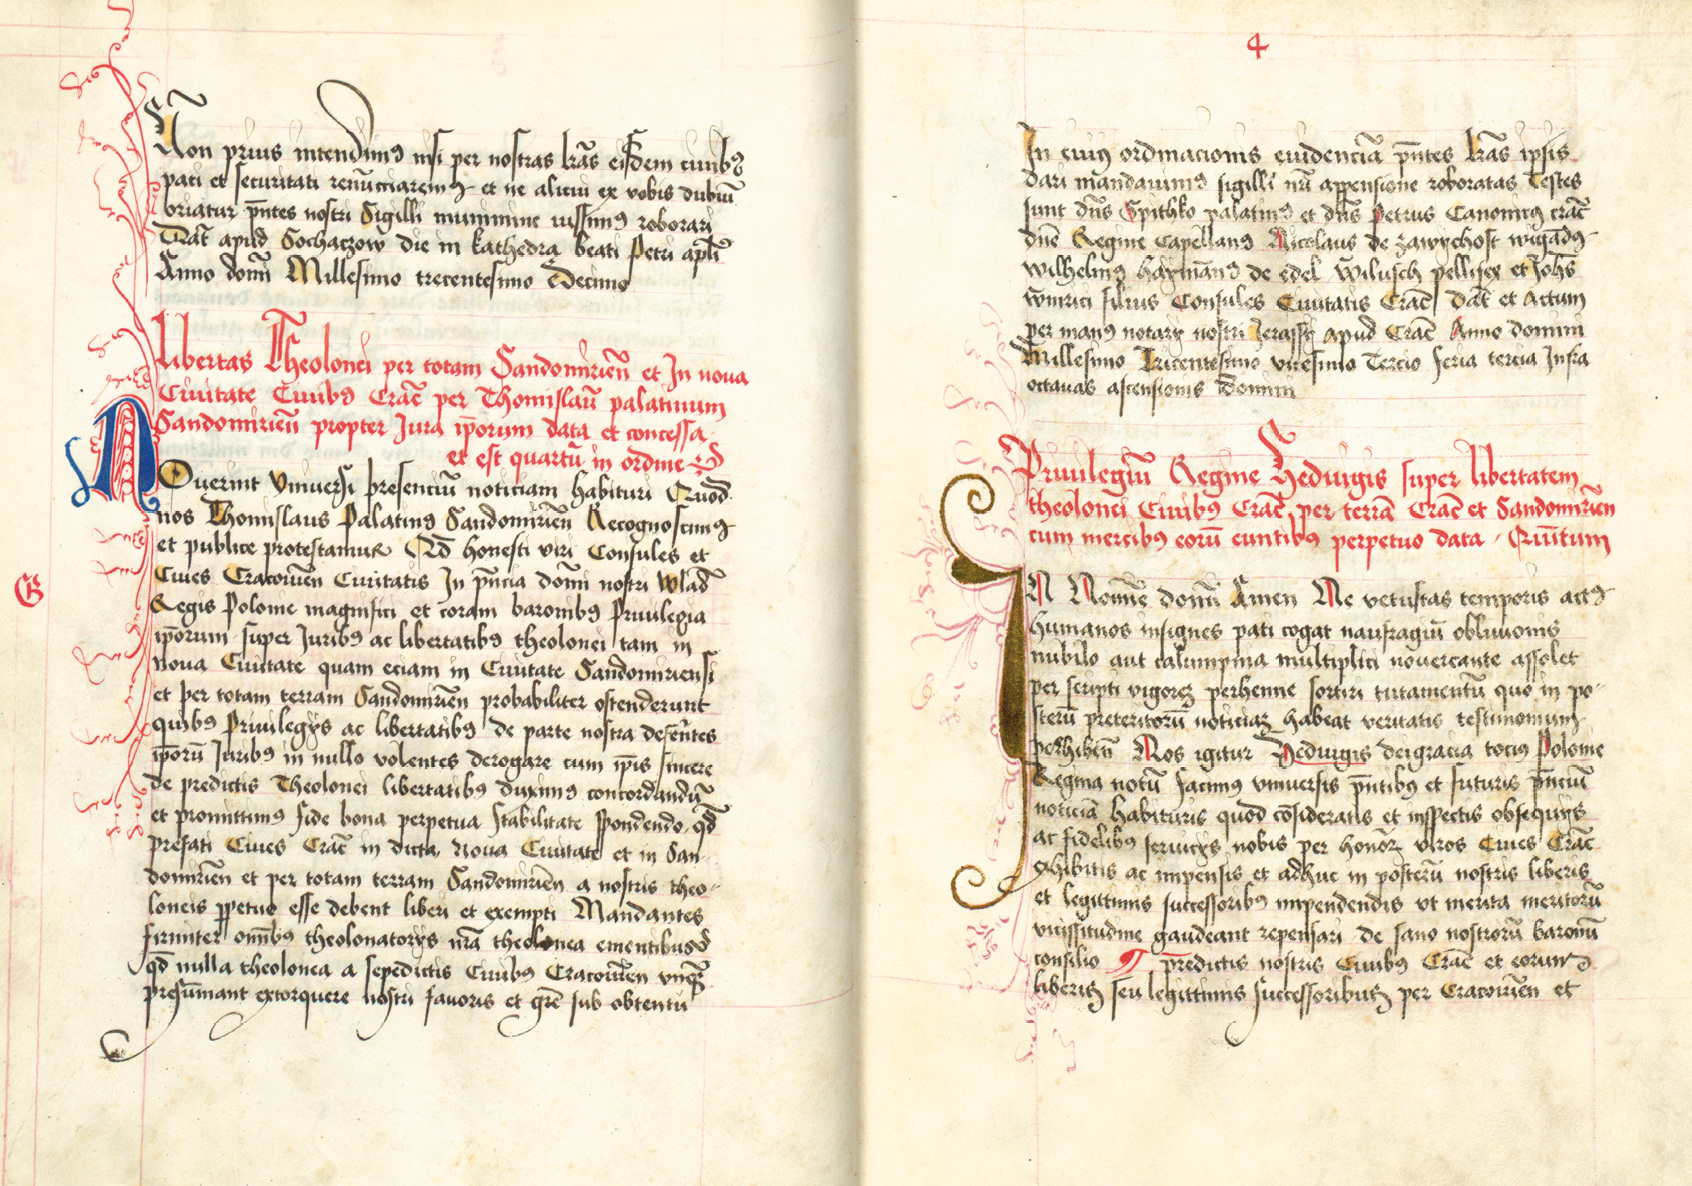 Non prius intendimus nisi per nostras lrās eisdem ciuibus
pati et securitati renūcciaremus et ne alicui ex vobis dubiū
oriatur pn̄tes nostri Sigilli munimine iussimus roborari
Dat̄ apud Sochaczow die in kathedra beati Petri apl̄i
Anno domī Millesimo trecentesimo Decimo
Libertas Theolonei per totam Sandomirien̄ et In noua
Ciuitate Ciuibus Crac̄ per Thomislaū palatinum
Sandomirien̄ propter Jura ip̄orum data et concessa
et est quartū in ordine
Nouerint vniuersi presenciū noticiam habituri Quod
nos Thomislaus Palatinus Sandomirien̄ Recognoscimus
et publice protestamur Qd̄ honesti viri Consules et
Ciues Cracouien̄ Ciuitatis In pn̄cia domī nostri Wlad̄
Regis Polonie magnifici et coram baronibus Priuilegia
ip̄orum super Juribus ac libertatibus theolonei tam in
Noua Ciuitate quam eciam in Ciuitate Sandomiriensi
et per totam terram Sandomirien̄ probabiliter ostenderunt
quibus Priuilegijs ac libertatibus de parte nostra defer̄ntes
ip̄orū Juribus in nullo volentes derogare cum ip̄is sincere
de predictis Theolonei libertatibus duximus concordandū
et promittimus fide bona perpetua stabilitate spondendo qd̄
prefati Ciues Crac̄ in dicta Noua Ciuitate et in San-
domirien̄ et per totam terram Sandomirien̄ a nostris theo-
loneis ꝑpetue esse debent liberi et exempti Mandantes
firmiter omībus theolonatorijs nr̄a theolonea ementibus
qd̄ nulla theolonea a sepedictis Ciuibus Cracouien̄ vnq̄
presumant extorquere nostri fauoris et gr̄e sub obtentu
G
4
In cuius ordinacionis euidenciā pn̄tes lrās ipsis
dari mandauimus sigilli nr̄i appensione roboratas Testes
sunt dn̄s Spithko palatinus et dn̄s Petrus Canonicus crac̄
dn̄e Regine Capellanus Nicolaus de Zawychost wigādus
Wilhelmus haymanus de edel Wilusch pellifex et Joh̄s
Winrici filius Consules Ciuitatis Crac̄ Dat̄ et Actum
per manus notarij nostri Jerassij apud Crac̄ Anno domini
Millesimo Tricentesimo vicesimo Tercio feria tercia Infra
octauas ascensionis domini
Priuilegiū Regine Heduigis super libertatem
theolonei Ciuibus Crac̄ per terrā Crac̄ et Sandomirien
cum mercibus eorū euntibus perpetuo data Quītum
IN Nomīe domī Amen Ne vetustas temporis actus
humanos insignes pati cogat naufragiū obliuionis
nubilo aut calumpnia multiplici nouercante assolet
per scripti vigorem perhenne sortiri tutamentū quo in po-
sterū preteritorū noticiam habeat veritatis testimonium
perhiben̄ Nos igitur Heduigis dei gracia tocius Polonie
Regina notū facimus vniuersis pn̄tibus et futuris pn̄ciū
noticiā habituris quod cōsideratis et inspectis obsequijs
ac fidelibus seruicijs nobis per honor̄ viros Ciues Crac̄
exhibitis ac impensis et adhuc in posterū nostris liberis
et legittimis successoribus impendendis vt merita meritorū
vicissitudine gaudeant repensari de sano nostrorū baronū
consilio predictis nostris Ciuibus Crac̄ et eorum
liberis seu legittimis successoribus per Cracouien̄ et